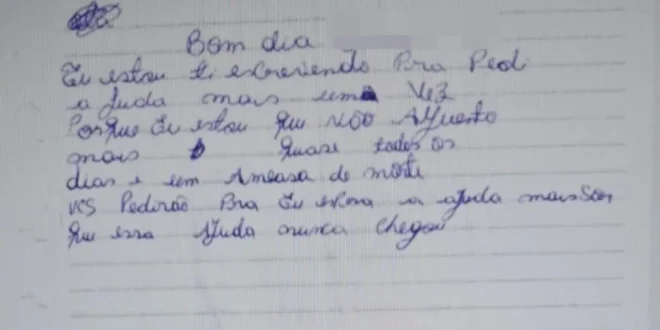 Bom dia
Eu estou ti escrevendo Pra Pedi
a Juda mais uma Vez
Porque Eu estou que NÃO AGuento
mais quase todos os
dias e um Ameasa de morte
vcs Pedirão Pra Eu espera a ajuda mais Son
que essa AJuda nunca chegou